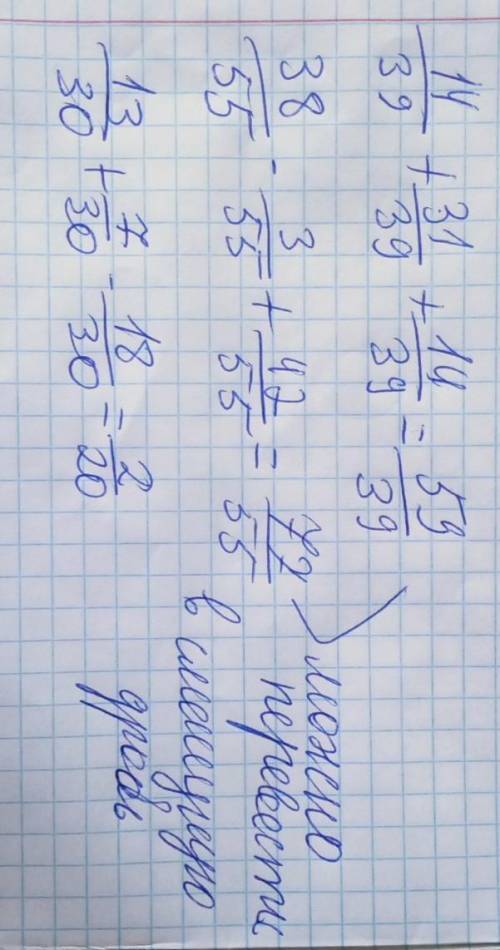 14/39 + 31/39 + 14/39 = 59/39
38/55 - 3/55 + 42/55 = 77/55
13/30 + 7/30 - 18/30 = 2/20
можно
перевести
в смешанную
дробь